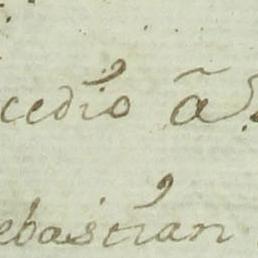 cedio ã
ebastian